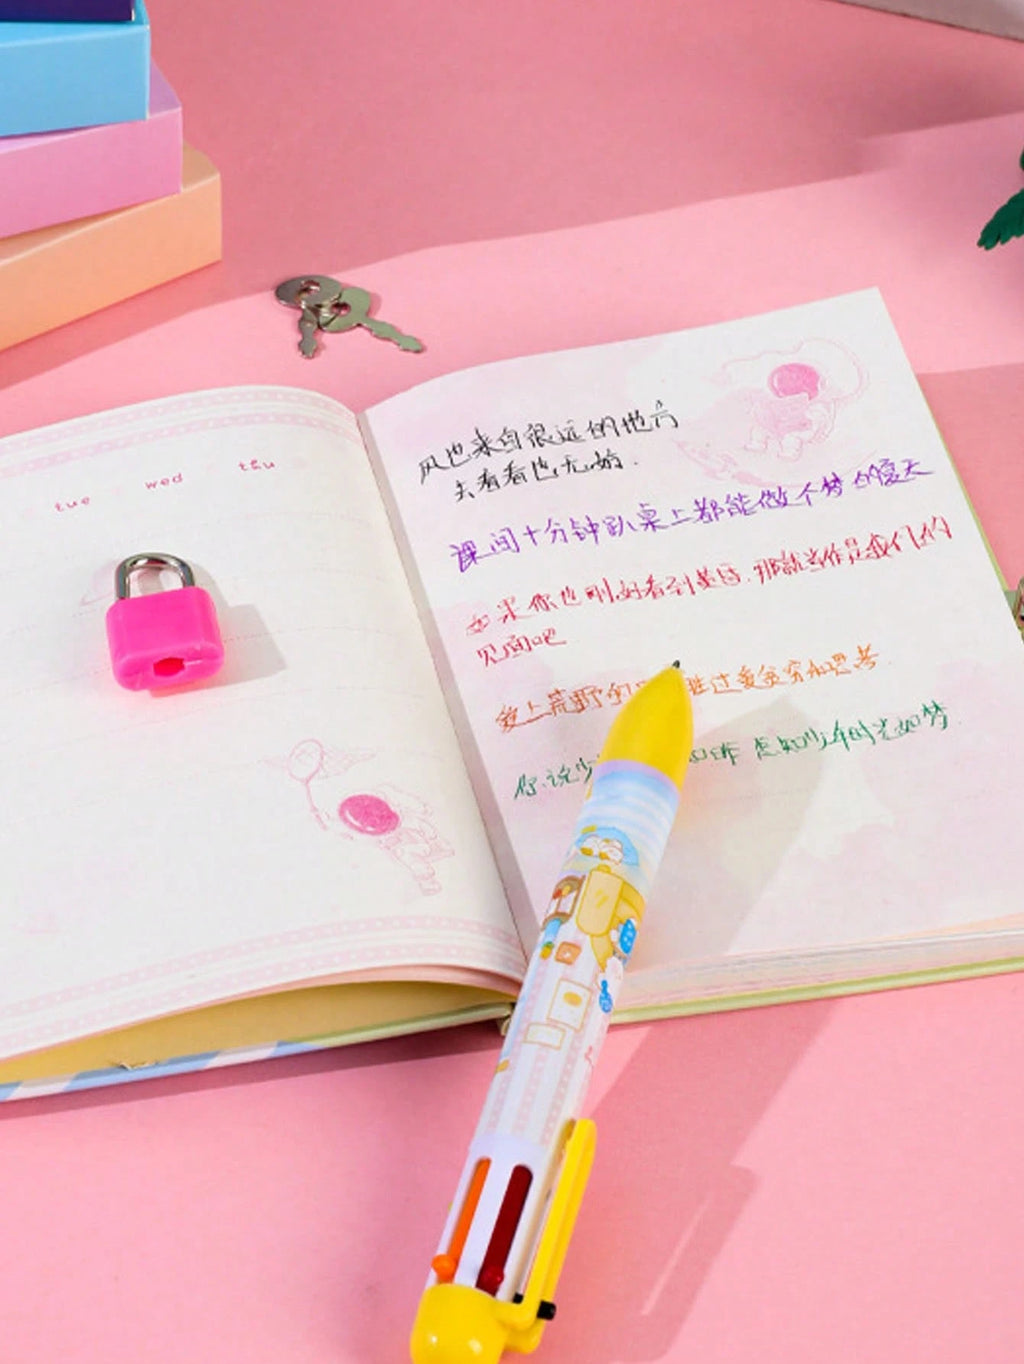 tue wed thu
风也来自很远的地方
去看看也无妨.
课间十分钟趴桌上都能做个梦的夏天
如果你也刚好看到黄昏.那就当作是我们的
见面吧
爱上荒野的 胜过爱贫穷和思考.
你说少 如昨 怎知少年时光如梦.